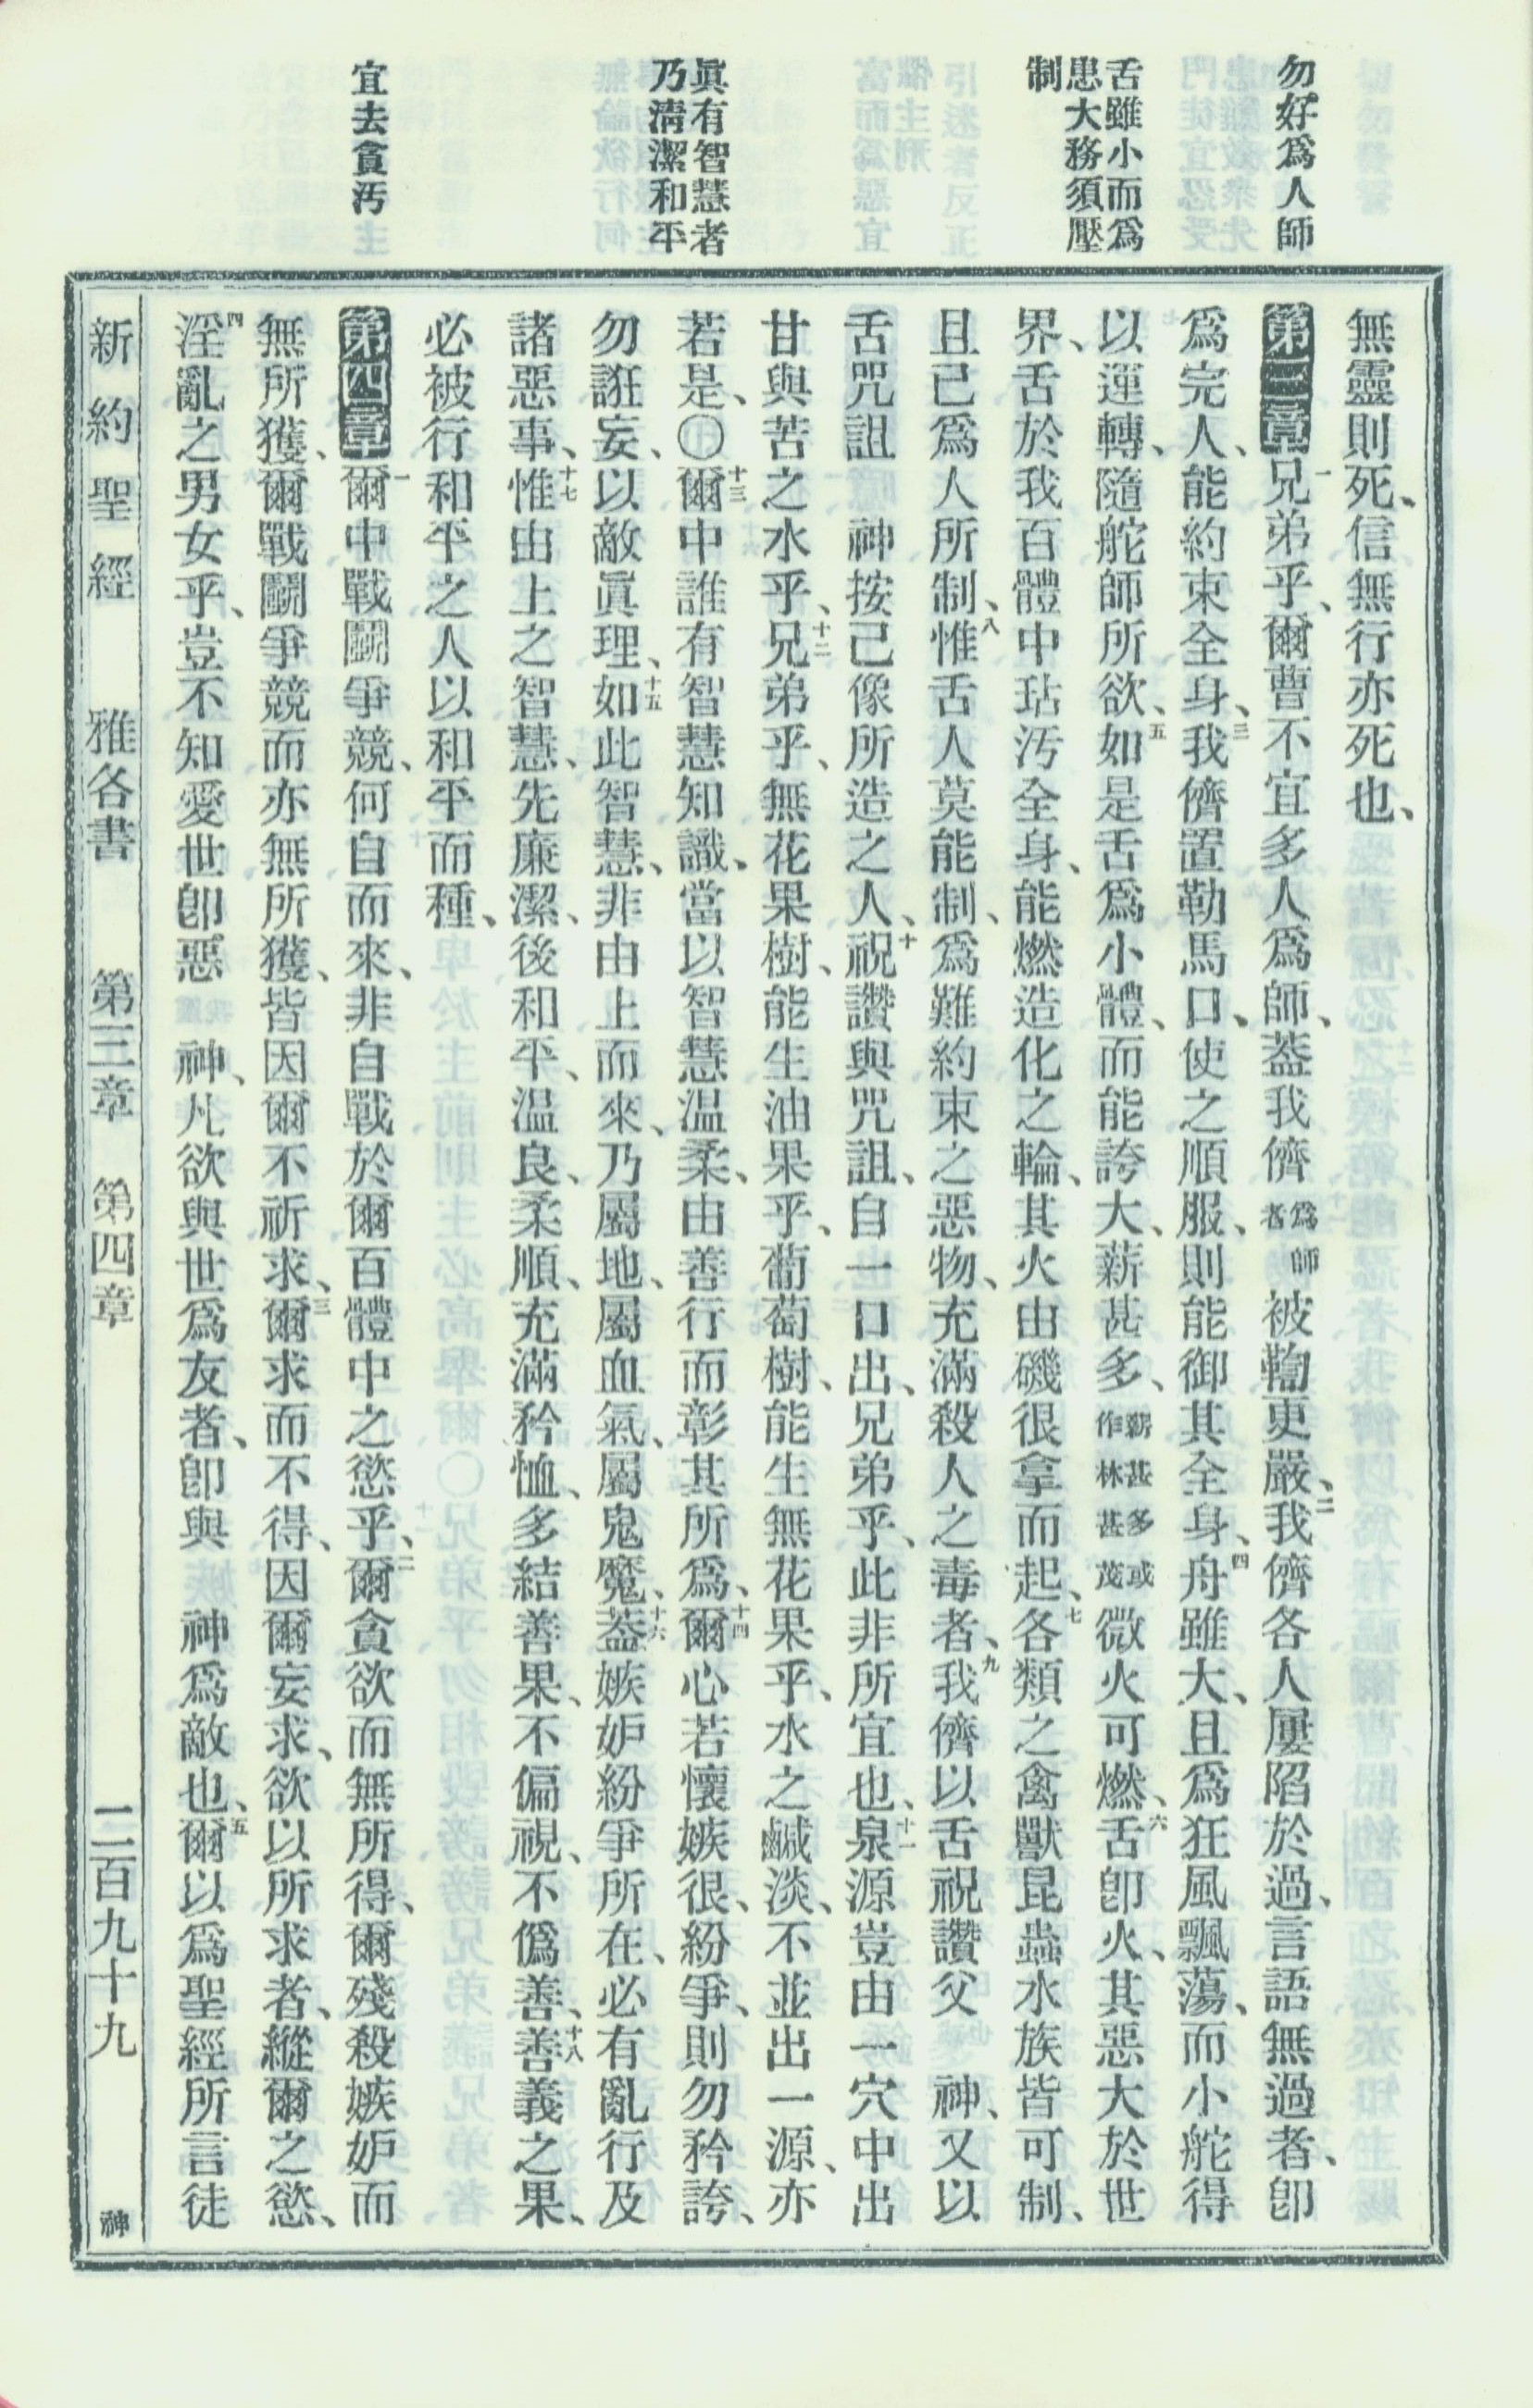 勿好爲人師
舌雖小而爲
患大務須壓
制
眞有智慧者
乃淸潔和平
宜去貪汚
無靈則死、信無行亦死也、
第三章一兄弟乎、爾曹不宜多人爲師、葢我儕爲師者被鞫更嚴、二我儕各人屢陷於過、言語無過者、卽
爲完人、能約束全身、三我儕置勒馬口、使之順服、則能御其全身、四舟雖大、且爲狂風飄蕩、而小舵得
以運轉、隨舵師所欲、五如是舌爲小體、而能誇大、薪甚多、薪甚多或作林甚茂微火可燃、六舌卽火、其惡大於世
界、舌於我百體中玷汚全身、能燃造化之輪、其火由磯很拿而起、七各類之禽獸昆蟲水族皆可制、
且已爲人所制、八惟舌人莫能制、爲難約束之惡物、充滿殺人之毒者、九我儕以舌祝讚父　神、又以
舌咒詛　神按己像所造之人、十祝讚與咒詛、自一口出、兄弟乎、此非所宜也、十一泉源豈由一穴中出
甘與苦之水乎、十二兄弟乎、無花果樹、能生油果乎、葡萄樹、能生無花果乎、水之鹹淡、不並出一源、亦
若是、〇十三爾中誰有智慧知識、當以智慧温柔、由善行而彰其所爲、十四爾心若懷嫉很、紛爭、則勿矜誇、
勿誑妄、以敵眞理、十五如此智慧、非由上而來、乃屬地、屬血氣、屬鬼魔、十六葢嫉妒紛爭所在、必有亂行及
諸惡事、十七惟由上之智慧、先廉潔、後和平、温良、柔順、充滿矜恤、多結善果、不偏視、不僞善、十八善義之果、
必被行和平之人以和平而種、
第四章一爾中戰鬭爭競、何自而來、非自戰於爾百體中之慾乎、二爾貪欲而無所得、爾殘殺嫉妒而
無所獲、爾戰鬭爭競而亦無所獲、皆因爾不祈求、三爾求而不得、因爾妄求、欲以所求者、縱爾之慾、
四淫亂之男女乎、豈不知愛世卽惡　神、凡欲與世爲友者、卽與　神爲敵也、五爾以爲聖經所言徒
新約聖經　雅各書　第三章　第四章　二百九十九　神